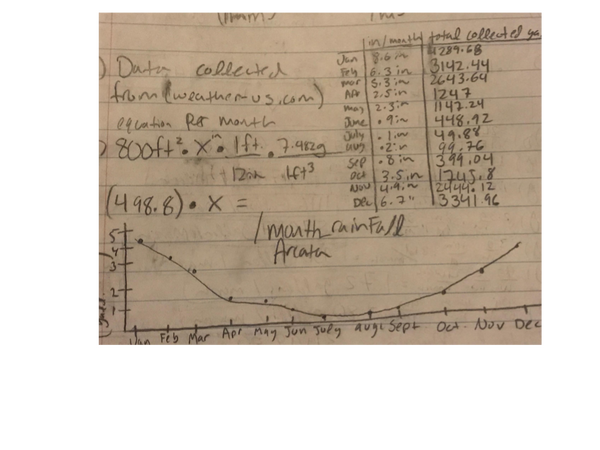 in/month total collected ga
) Data collected
from (weather-us.com)
equation per month
) 800ft². X in. 1ft. 7.482g
12in 1ft³
(498.8) • X =
Jan 8.6 in 4289.68
Feb 6.3 in 3142.44
mar 5.3 in 2643.64
Apr 2.5 in 1247
may 2.3 in 1147.24
June .9 in 448.92
July .1 in 49.88
aug .2 in 99.76
Sep .8 in 399.04
Oct 3.5 in 1745.8
Nov 4.9 in 2444.12
Dec 6.7" 3341.96
/month rainfall
Arcata
5
4
3
2
1
Jan Feb Mar Apr May Jun July aug Sept Oct Nov Dec